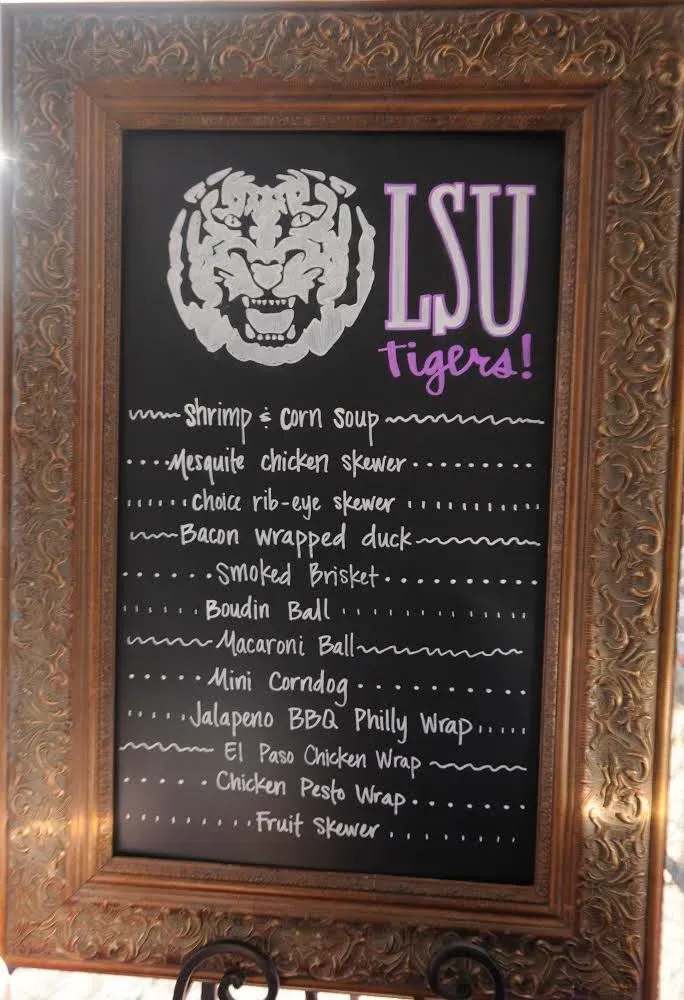 LSU
tigers!
shrimp & corn soup
Mesquite chicken skewer
choice rib-eye skewer
Bacon wrapped duck
Smoked Brisket
Boudin Ball
Macaroni Ball
Mini Corndog
Jalapeno BBQ Philly Wrap
El Paso Chicken Wrap
Chicken Pesto Wrap
Fruit Skewer